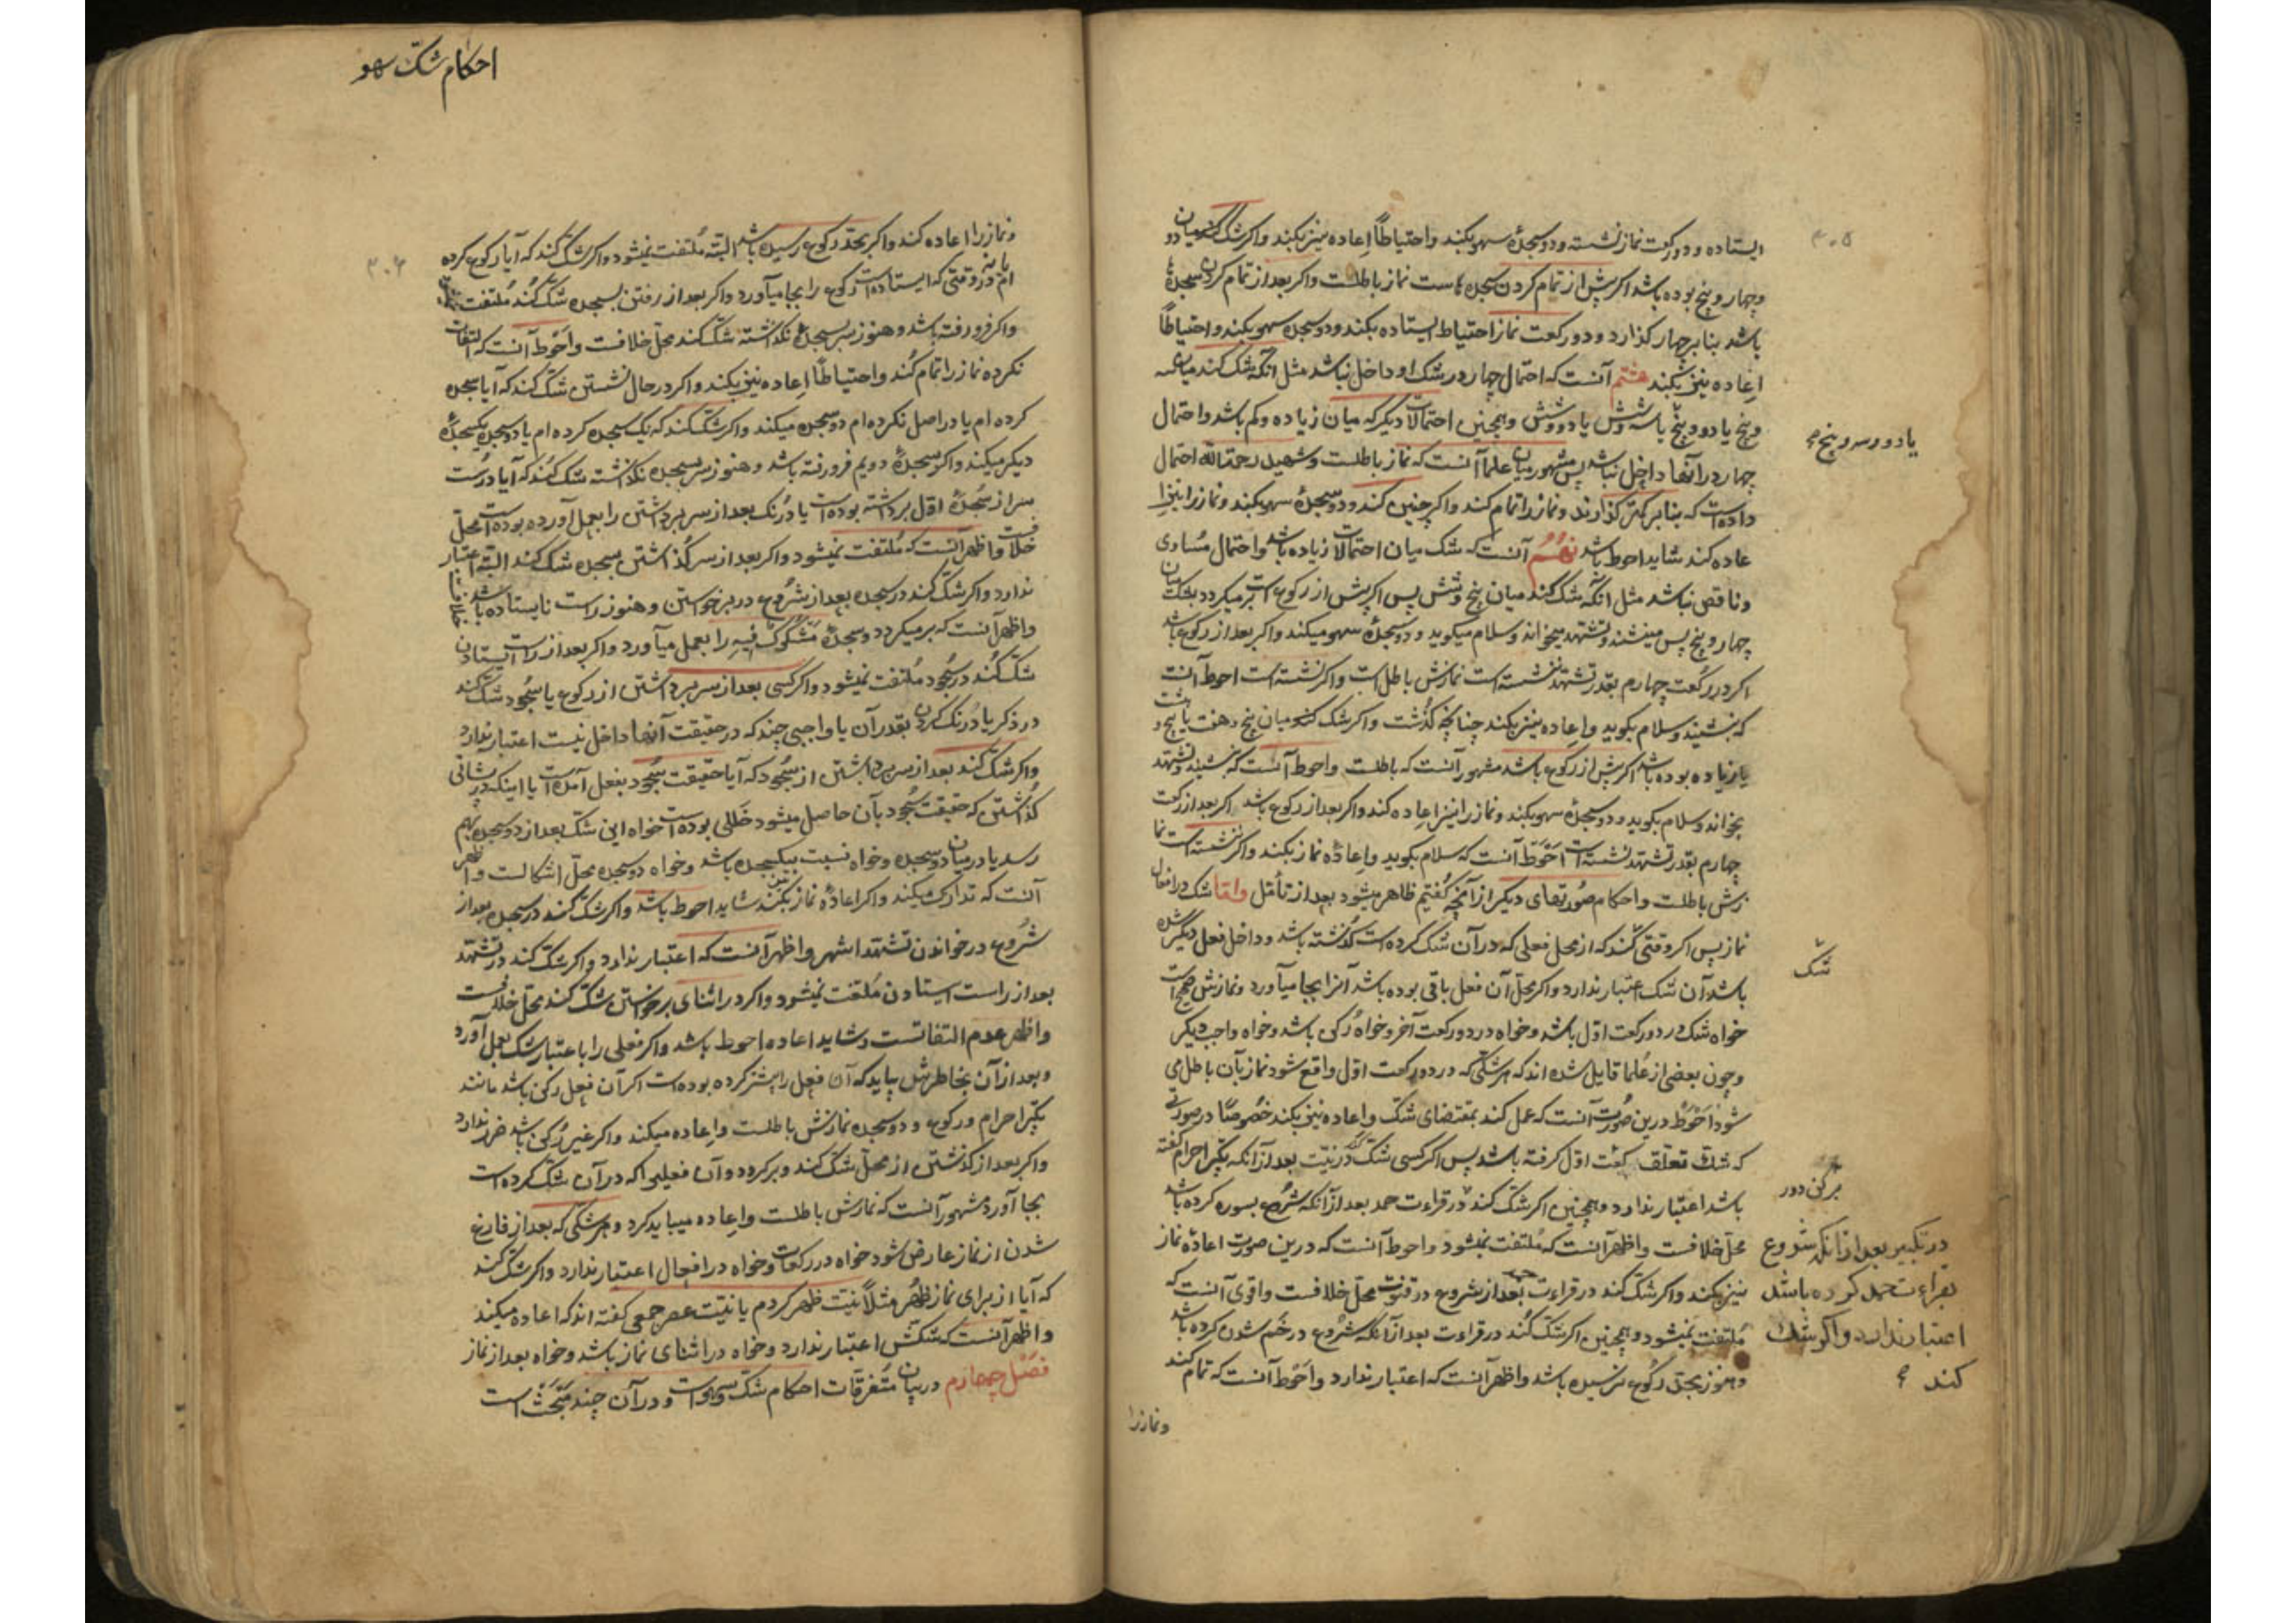 ۳۰۵
ایستاده و دو رکعت نماز نشسته و دو سجدهٔ سهو بکند و احتیاطاً اعاده نیز بکند و اکر شک کند میان دو
و چهار و پنج بوده باشد اکر پیش از تمام کردن سجده هاست نماز باطلست و اکر بعد از تمام کردن سجدها
باشد بنا بر چهار کذارد و دو رکعت نماز احتیاط ایستاده بکند و دو سجده سهو بکند و احتیاطاً
اعاده نیز بکند هشتم آنست که احتمال چهار در شک او داخل نباشد مثل انکه شک کند میان سه
و پنج یا دو و پنج یا سه و شش یا دو و شش و همچنین احتمالات دیکر که میان زیاده و کم باشد و احتمال
یا دو و سه و پنج
چهار در آنها داخل نباشد پس مشهور میان علما آنست که نماز باطلست و شهید رحمه الله احتمال
داده است که بنا بر کمتر کذارند و نماز را تمام کند و اکر چنین کند و دو سجدهٔ سهو بکند و نماز را نیز ا
عاده کند شاید احوط باشد نهم آنست که شک میان احتمالات زیاده باشد و احتمال مساوی
و ناقص نباشد مثل انکه شک کند میان پنج و شش پس اکر پیش از رکوع است بر میکردد بشک میان
چهار و پنج پس مینشیند و تشهد میخواند و سلام میکوید و دو سجدهٔ سهو میکند و اکر بعد از رکوع باشد
اکر در رکعت چهارم بقدر تشهد ننشسته است نمازش باطل است و اکر نشسته است احوط آنست
که بنشیند و سلام بکوید و اعاده نیز بکند چنانچه کذشت و اکر شک کند میان پنج و هفت یا پنج و هشت
یا زیاده بوده باشد اکر پیش از رکوع باشد مشهور آنست که باطلست و احوط آنست که بنشیند و تشهد
بخواند و سلام بکوید و دو سجدهٔ سهو بکند و نماز را نیز اعاده کند و اکر بعد از رکوع باشد اکر بعد از رکعت
چهارم بقدر تشهد نشسته است احوط آنست که سلام بکوید و اعادهٔ نماز بکند و اکر ننشسته است نما
زش باطلست و احکام صورتهای دیکر از آنچه کفتیم ظاهر میشود بعد از تأمل و اما شک در افعال
نماز پس اکر وقتی کند که از محل فعلی که در آن شک کرده است کذشته باشد و داخل فعل دیکر شده
شک
باشد آن شک اعتبار ندارد و اکر محل آن فعل باقی بوده باشد آنرا بجا میآورد و نمازش صحیح است
خواه شک در دو رکعت اول باشد و خواه در دو رکعت آخر و خواه رکنی باشد و خواه واجب دیکر
و چون بعضی از علما قایل شده اند که هر شکی که در دو رکعت اول واقع شود نماز بآن باطل می
شود احوط درین صورت آنست که عمل کند بمقتضای شک و اعاده نیز بکند خصوصاً در صورتی
که شک تعلق کرفته باشد پس اکر کسی شک کند در نیت بعد از آنکه تکبیر احرام کفته
برکن دور
باشد اعتبار ندارد و همچنین اکر شک کند در قراءت حمد بعد از آنکه شروع بسوره کرده باشد
در تکبیر بعد از انکه شروع
بقراءت حمد کرده باشد
اعتبار ندارد و اکر شک
کند
محل خلافست و اظهر آنست که ملتفت نمیشود و احوط آنست که درین صورت اعادهٔ نماز
نیز بکند و اکر شک کند در قراءت بعد از شروع در قنوت محل خلافست و اقوی آنست که
ملتفت نمیشود و همچنین اکر شک کند در قراءت بعد از آنکه شروع در خم شدن کرده باشد
و هنوز بحد رکوع نرسیده باشد و اظهر آنست که اعتبار ندارد و احوط آنست که تمام کند
و نماز را
احکام شک سهو
۳۰۶
و نماز را اعاده کند و اکر بحد رکوع رسیده باشد البته ملتفت نمیشود و اکر شک کند که آیا رکوع کرده
ام یا نه در وقتی که ایستاده است رکوع را بجا میآورد و اکر بعد از رفتن بسجده شک کند ملتفت
و اکر فرو رفته باشد و هنوز سر بسجده نکذاشته شک کند محل خلافست و احوط آنست که التفات
نکرده نماز را تمام کند و احتیاطاً اعاده نیز بکند و اکر در حال نشستن شک کند که آیا سجده
کرده ام یا در اصل نکرده ام دو سجده میکند و اکر شک کند که یک سجده کرده ام یا دو سجده یکسجدهٔ
دیکر میکند و اکر سجدهٔ دویم فرو رفته باشد و هنوز سر بسجده نکذاشته شک کند که آیا درست
سر از سجدهٔ اول برداشته بوده است یا درنک بعد از سر برداشتن را بعمل آورده بوده است محل
خلافست و اظهر آنست که ملتفت نمیشود و اکر بعد از سر کذاشتن بسجده شک کند البته اعتبار
ندارد و اکر شک کند در سجده بعد از شروع در بر خواستن و هنوز راست نایستاده باشد
و اظهر آنست که بر میکردد و سجدهٔ مشکوک فیه را بعمل میآورد و اکر بعد از راست ایستادن
شک کند در سجود ملتفت نمیشود و اکر کسی بعد از سر برداشتن از رکوع یا سجود شک کند
در ذکر یا درنک کردن بقدر آن یا واجبی چند که در حقیقت آنها داخل نیست اعتبار ندارد
و اکر شک کند بعد از سر برداشتن از سجود که آیا حقیقت سجود بفعل آمده است یا اینکه در پیشانی
کذاشتن که حقیقت سجود بآن حاصل میشود خللی بوده است خواه این شک بعد از دو سجده بهم
رسد یا در میان دو سجده و خواه نسبت بیکسجده باشد و خواه دو سجده محل اشکالست و اظهر
آنست که تدارک میکند و اکر اعادهٔ نماز نیز بکند شاید احوط باشد و اکر شک کند در سجده بعد از
شروع در خواندن تشهد اشهر و اظهر آنست که اعتبار ندارد و اکر شک کند در تشهد
بعد از راست ایستادن ملتفت نمیشود و اکر در اثنای برخواستن شک کند محل خلافست
و اظهر عدم التفاتست و شاید اعاده احوط باشد و اکر فعلی را باعتبار شک بعمل آورد
و بعد از آن بخاطرش بیاید که آن فعل را پیشتر کرده بوده است اکر آن فعل رکن باشد مانند
تکبیر احرام و رکوع و دو سجده نمازش باطلست و اعاده میکند و اکر غیر رکن باشد ضرر ندارد
و اکر بعد از کذشتن از محل شک کند و برکردد و آن فعلیرا که در آن شک کرده است
بجا آورد مشهور آنست که نمازش باطلست و اعاده میباید کرد و هر شکی که بعد از فارغ
شدن از نماز عارض شود خواه در رکعات و خواه در افعال اعتبار ندارد و اکر شک کند
که آیا از برای نماز ظهر مثلاً نیت ظهر کردم یا نیت عصر جمعی کفته اند که اعاده میکند
و اظهر آنست که شکش اعتبار ندارد و خواه در اثنای نماز باشد و خواه بعد از نماز
فصل چهارم در بیان متفرقات احکام شک و سهو است و در آن چند مبحث است